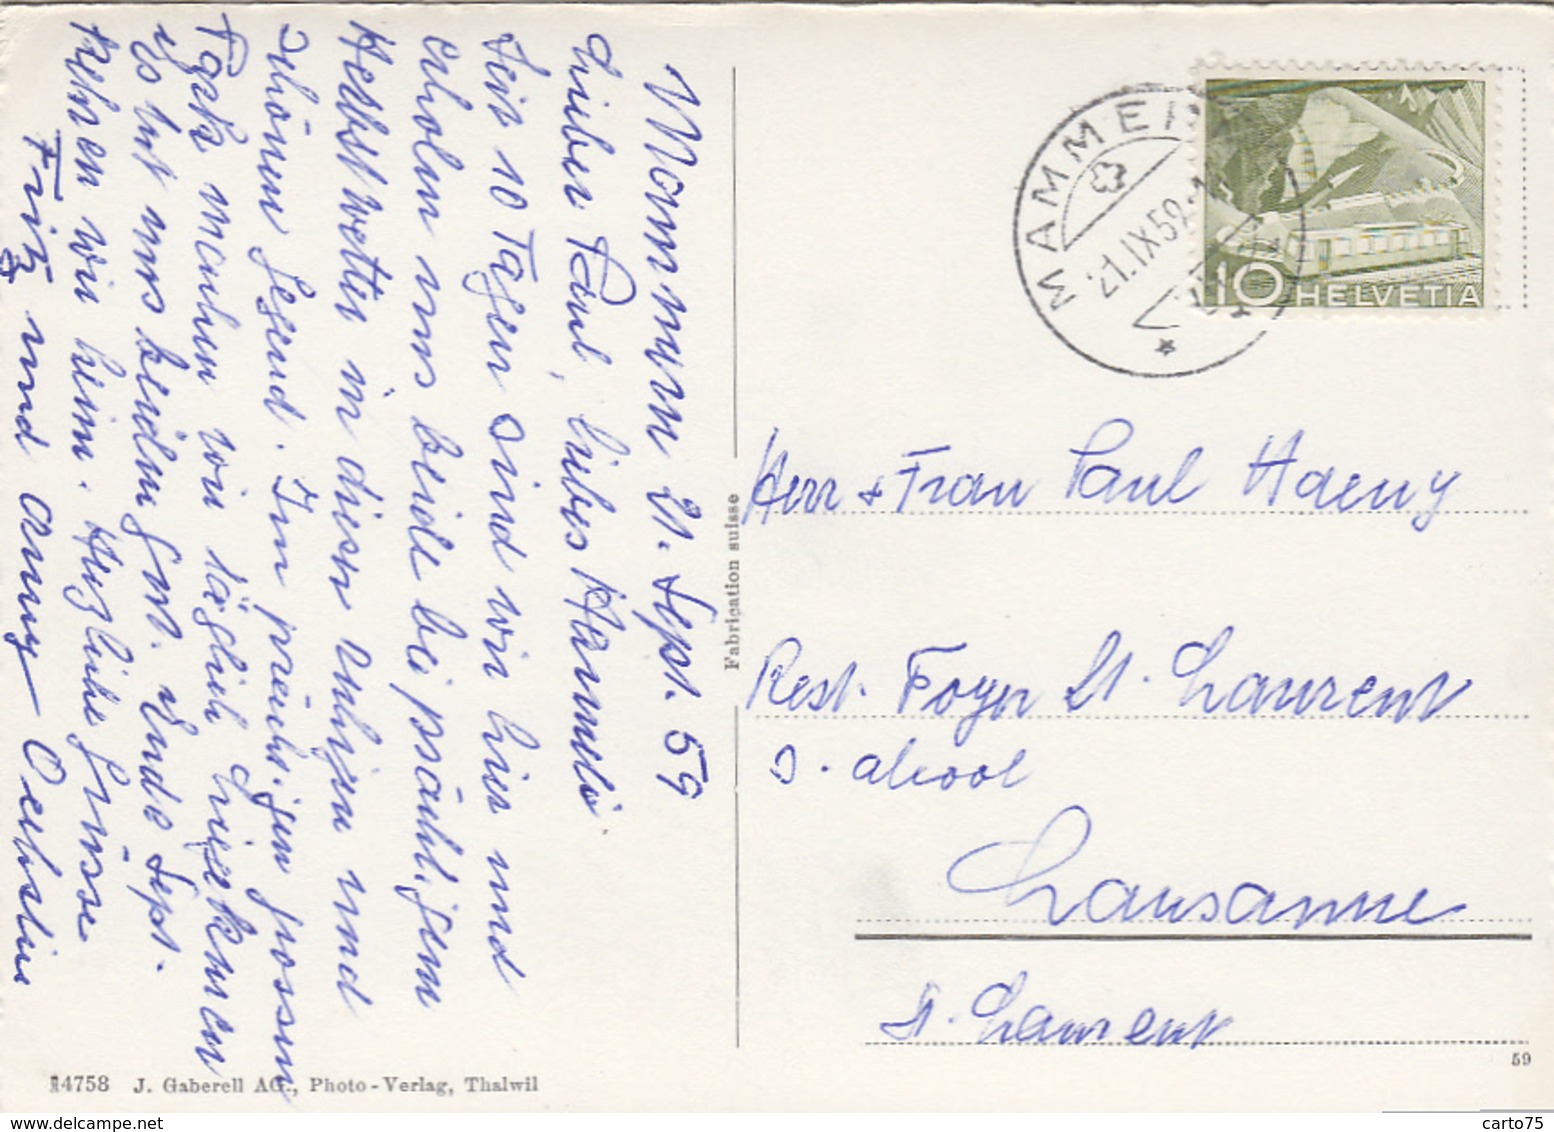 Mammern 21. Sept. 59
Lieber Paul, liebes Hanneli
Seit 10 Tagen sind wir hier und
erholen uns beide bei prächtigem
Herbstwetter in dieser ruhigen und
schönen Gegend. Im prächtigen grossen
Park machen wir täglich
Es tut uns beiden gut. Ende Sept.
kehren wir heim. Herzliche Grüsse
Fritz und Anny
MAMMERN
21.IX.59
10 HELVETIA
Herr & Frau Paul Haeny
Rest. Foyer St. Laurent
s. alcool
Lausanne
St. Laurent
Fabrication suisse
14758 J. Gaberell AG., Photo-Verlag, Thalwil
59
http://www.delcampe.net
carto75